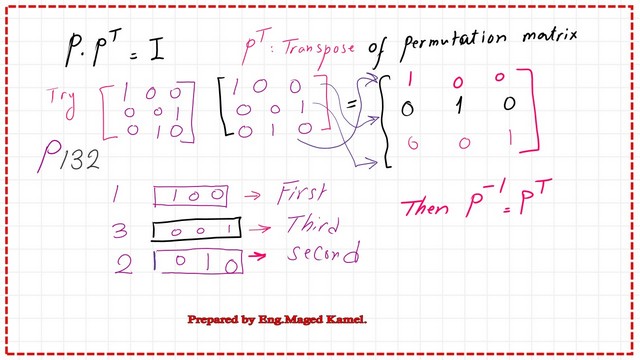 P.Pᵀ = I
Pᵀ: Transpose of permutation matrix
Try [1 0 0 [1 0 0 = [1 0 0
0 0 1 0 0 1 0 1 0
0 1 0] 0 1 0] 0 0 1]
P132
1 1 0 0 → First
3 0 0 1 → Third
2 0 1 0 → second
Then P⁻¹ = Pᵀ
Prepared by Eng.Maged Kamel.